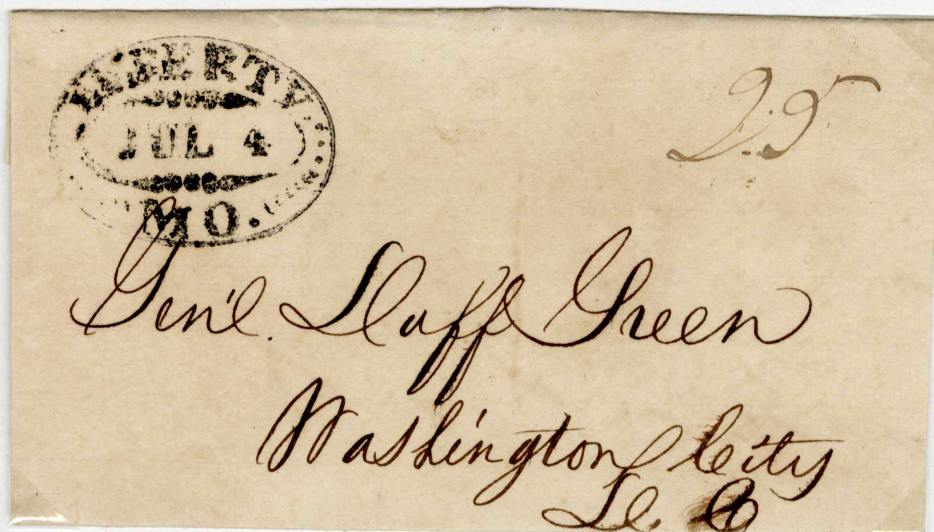 LIBERTY
JUL 4
MO.
25
Gen'l. Duff Green
Washington City
D. C